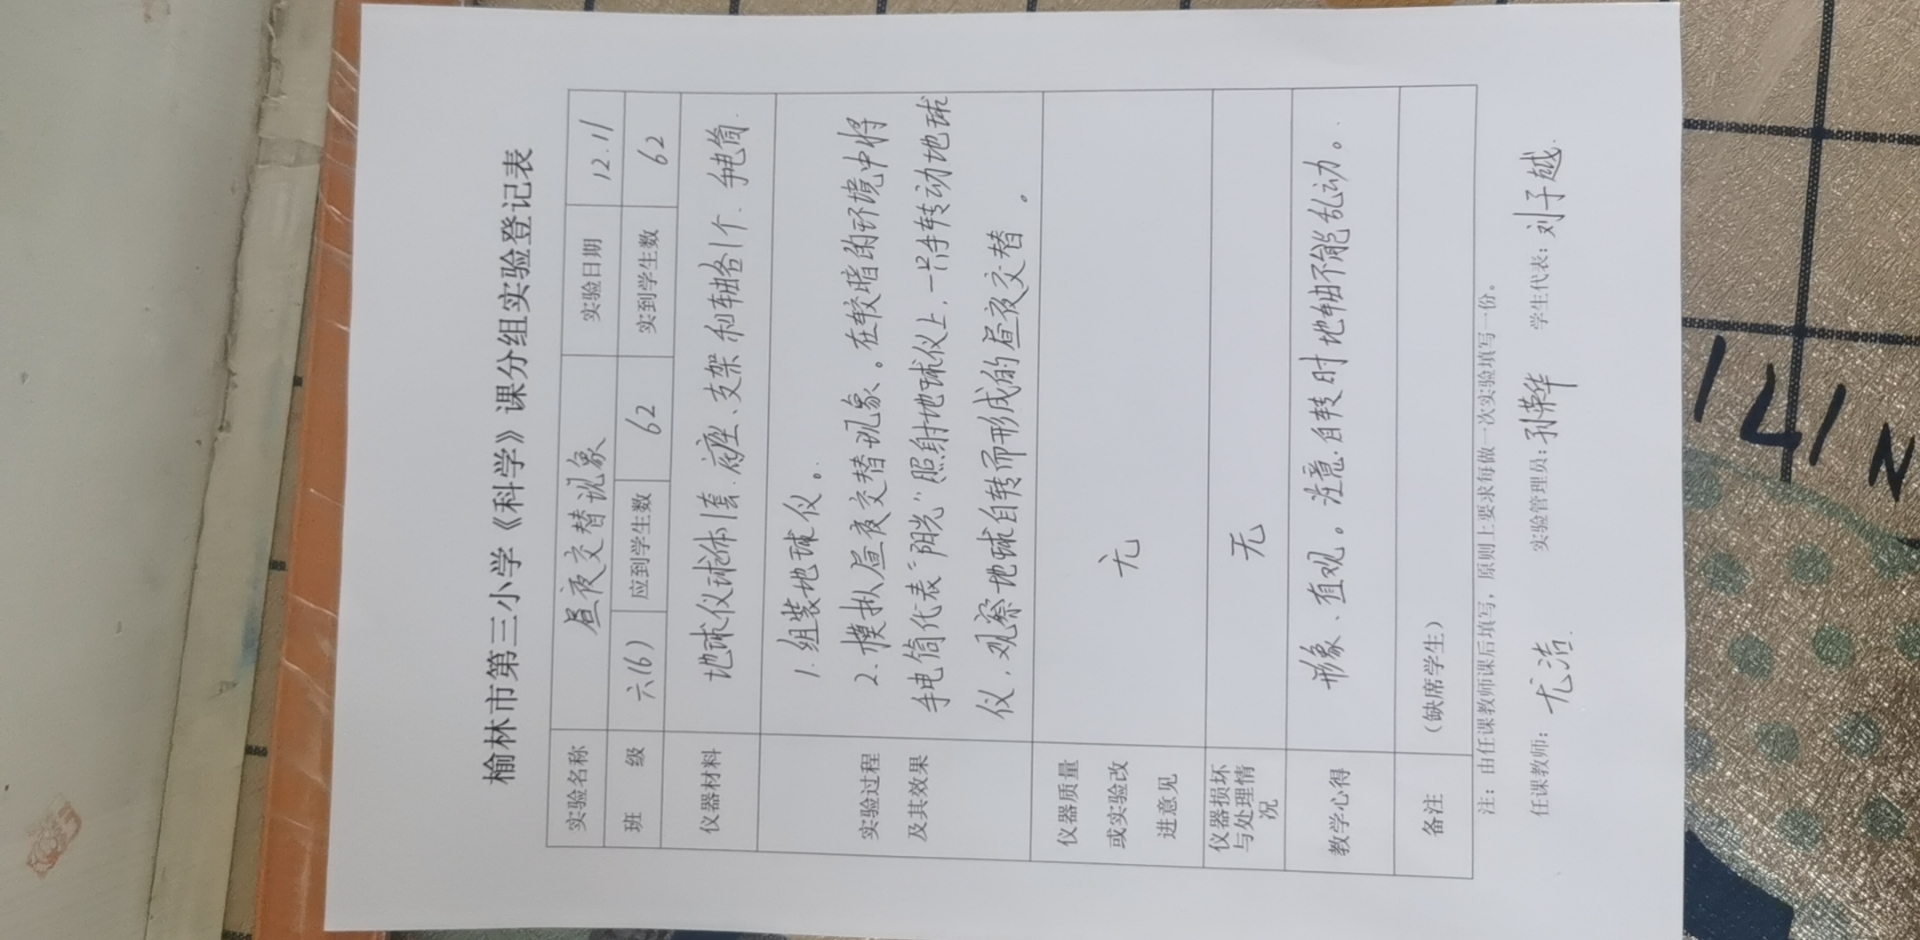 榆林市第三小学《科学》课分组实验登记表
实验名称 昼夜交替现象 实验日期 12.11
班 级 六(6) 应到学生数 62 实到学生数 62
仪器材料 地球仪球体1套、底座、支架和轴各1个、手电筒.
实验过程
及其效果
1. 组装地球仪。
2. 模拟昼夜交替现象。在较暗的环境中将
手电筒代表“阳光”照射地球仪上,一只手转动地球
仪,观察地球自转而形成的昼夜交替。
仪器质量
或实验改
进意见
无
仪器损坏
与处理情
况
无
教学心得 形象、直观。注意.自转时地轴不能乱动。
备注 (缺席学生)
注:由任课教师课后填写,原则上要求每做一次实验填写一份。
任课教师: 尤洁. 实验管理员: 孙荣华 学生代表: 刘子越.